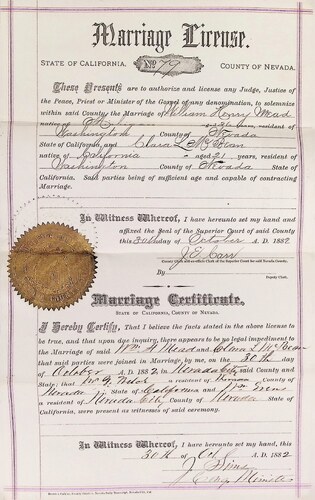 Marriage License.
STATE OF CALIFORNIA, No. 79 COUNTY OF NEVADA.
These Presents are to authorize and license any Judge, Justice of
the Peace, Priest or Minister of the Gospel of any denomination, to solemnize
within said County the Marriage of William Henry Mead
native of aged 26 years, resident of
Washington County of Nevada
State of California, and Clara L McBean
native of California aged 21 years, resident of
Washington County of Nevada State of
California. Said parties being of sufficient age and capable of contracting
Marriage.
In Witness Whereof, I have hereunto set my hand and
affixed the Seal of the Superior Court of said County
this 30th day of October A. D. 1882
J E Carr
County Clerk and ex-officio Clerk of the Superior Court for said Nevada County.
By
Deputy Clerk.
Marriage Certificate.
STATE OF CALIFORNIA, COUNTY OF NEVADA.
I Hereby Certify, That I believe the facts stated in the above license to
be true, and that upon due inquiry, there appears to be no legal impediment to
the Marriage of said Wm H Mead and Clara L McBean
that said parties were joined in Marriage by me, on the 30th day
of October A.D. 1882, in Nevada City said County and
State; that a resident of Nevada County of
Nevada State of California and Wm
a resident of Nevada City County of Nevada State of
California, were present as witnesses of said ceremony.
In Witness Whereof, I have hereunto set my hand, this
30th of Oct A. D. 1882
J Sims
Minister